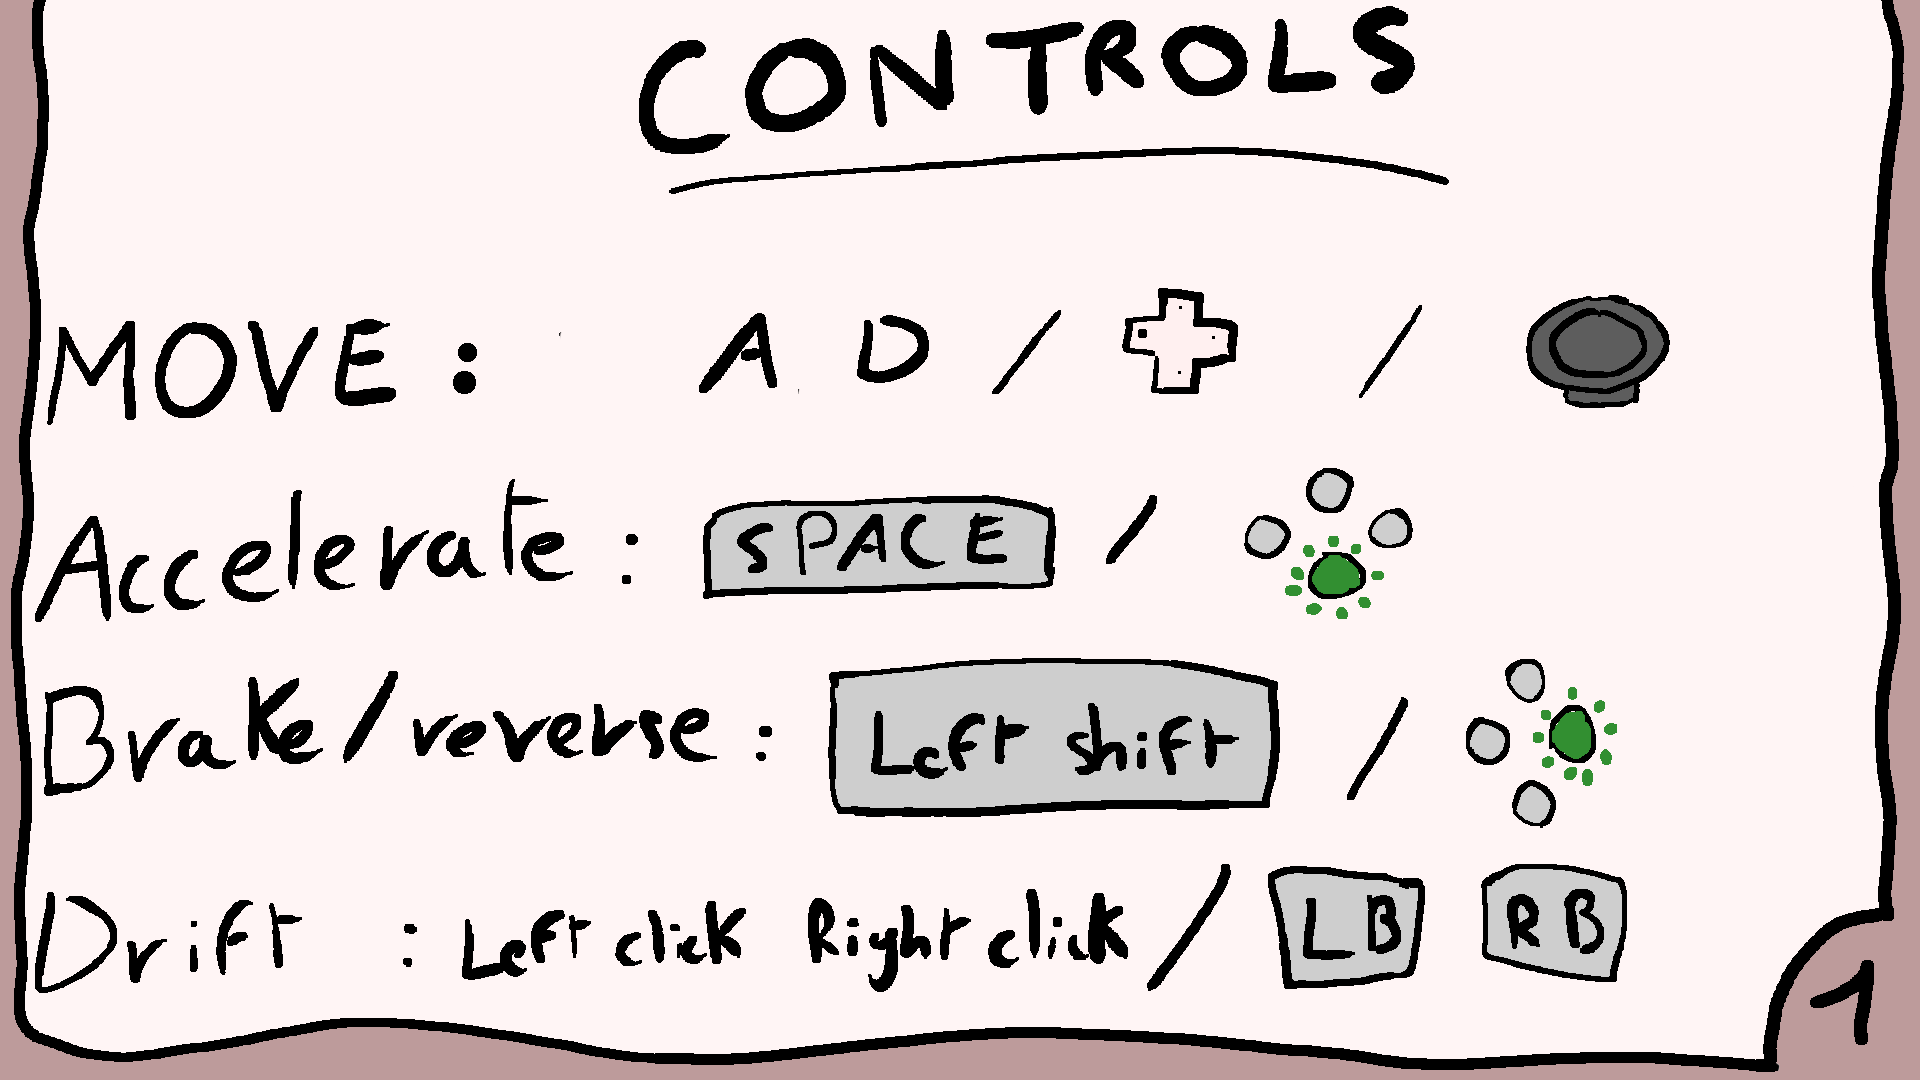 CONTROLS
MOVE : A D / /
Accelerate : SPACE /
Brake/reverse : Left shift /
Drift : Left click Right click / LB RB
1